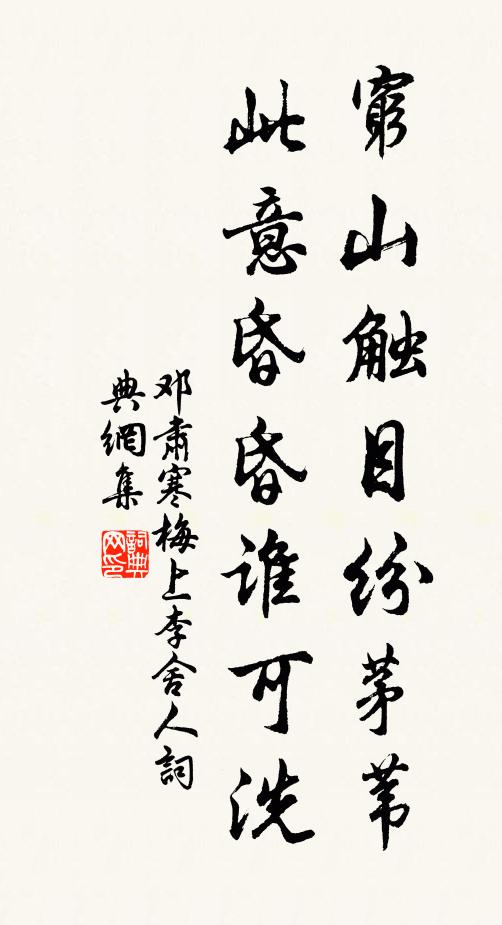 窮山触目纷茅苇
此意昏昏谁可洗
邓肃寒梅上李舍人詞
典網集
詞典网印